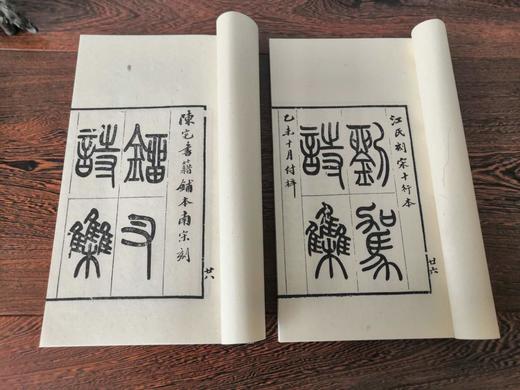 江氏刻宋十行本
廿六
劉駕
詩集
乙未十月付梓
陳宅書籍鋪本南宋刻
廿八
鎦叉
詩集